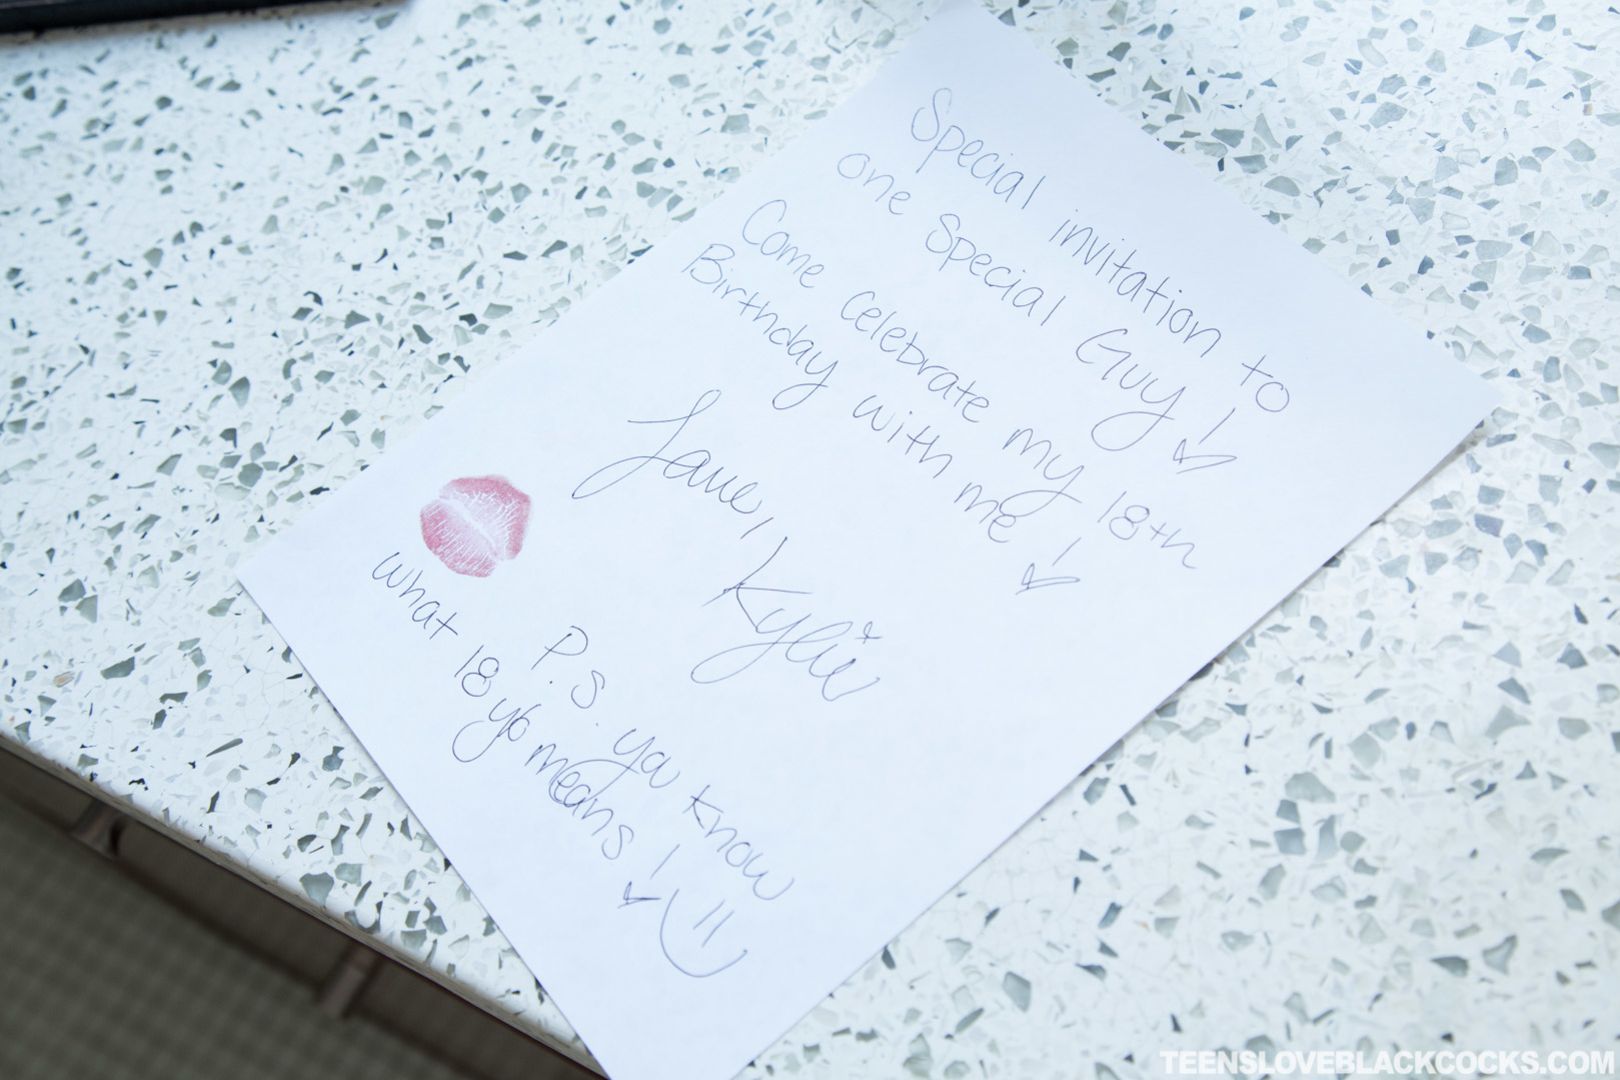 Special invitation to
one Special Guy!
Come celebrate my 18th
Birthday with me!
Love,
Kylie
P.S. you know
what 18 y/o means!
TEENSLOVEBLACKCOCKS.COM